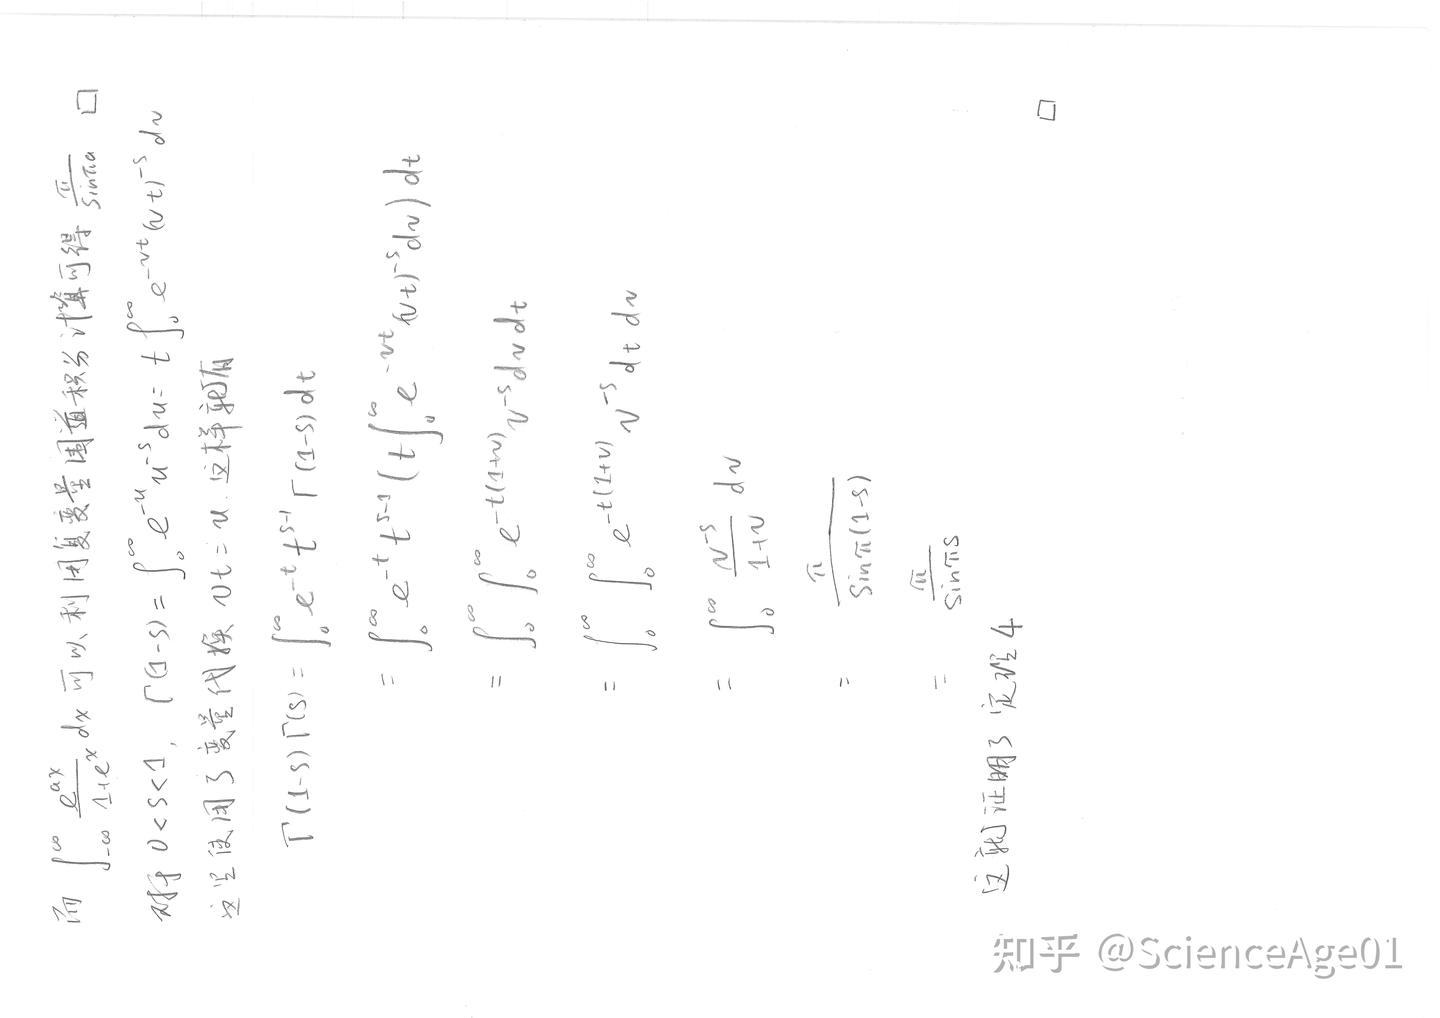 而 ∫_{-∞}^{∞} e^{ax}/(1+e^x) dx 可以利用复变量围道积分计算可得 π/sinπa □
对于 0<s<1, Γ(1-s) = ∫_0^∞ e^{-u} u^{-s} du = t ∫_0^∞ e^{-vt} (vt)^{-s} dv
这里使用了变量代换 vt = u. 这样就有
Γ(1-s)Γ(s) = ∫_0^∞ e^{-t} t^{s-1} Γ(1-s) dt
= ∫_0^∞ e^{-t} t^{s-1} (t ∫_0^∞ e^{-vt} (vt)^{-s} dv) dt
= ∫_0^∞ ∫_0^∞ e^{-t(1+v)} v^{-s} dv dt
= ∫_0^∞ ∫_0^∞ e^{-t(1+v)} v^{-s} dt dv
= ∫_0^∞ v^{-s}/(1+v) dv
= π/sinπ(1-s)
= π/sinπs
这就证明了定理4 □
知乎 @ScienceAge01